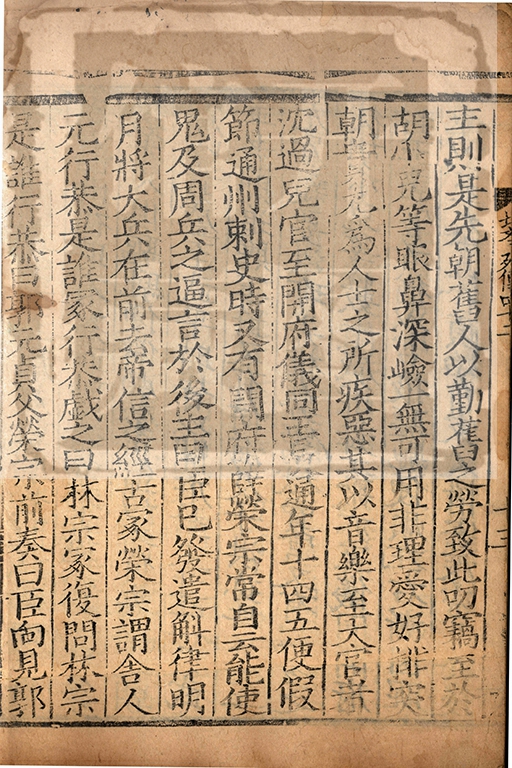 主則是先朝舊人以勤舊之勞致此叨竊至於
胡小兒等眼鼻深嶮一無可用非理愛好排突
朝貴尤為人士之所疾惡其以音樂至大官者
沈過兒官至開府儀同王長通年十四五便假
節通州刺史時又有開府薛榮宗常自云能使
鬼及周兵之逼言於後主曰臣已發遣斛律明
月將大兵在前去帝信之經古冢榮宗謂舍人
元行恭是誰冢行恭戲之曰林宗冢復問林宗
是誰行恭曰郭元貞父榮宗前奏曰臣向見郭